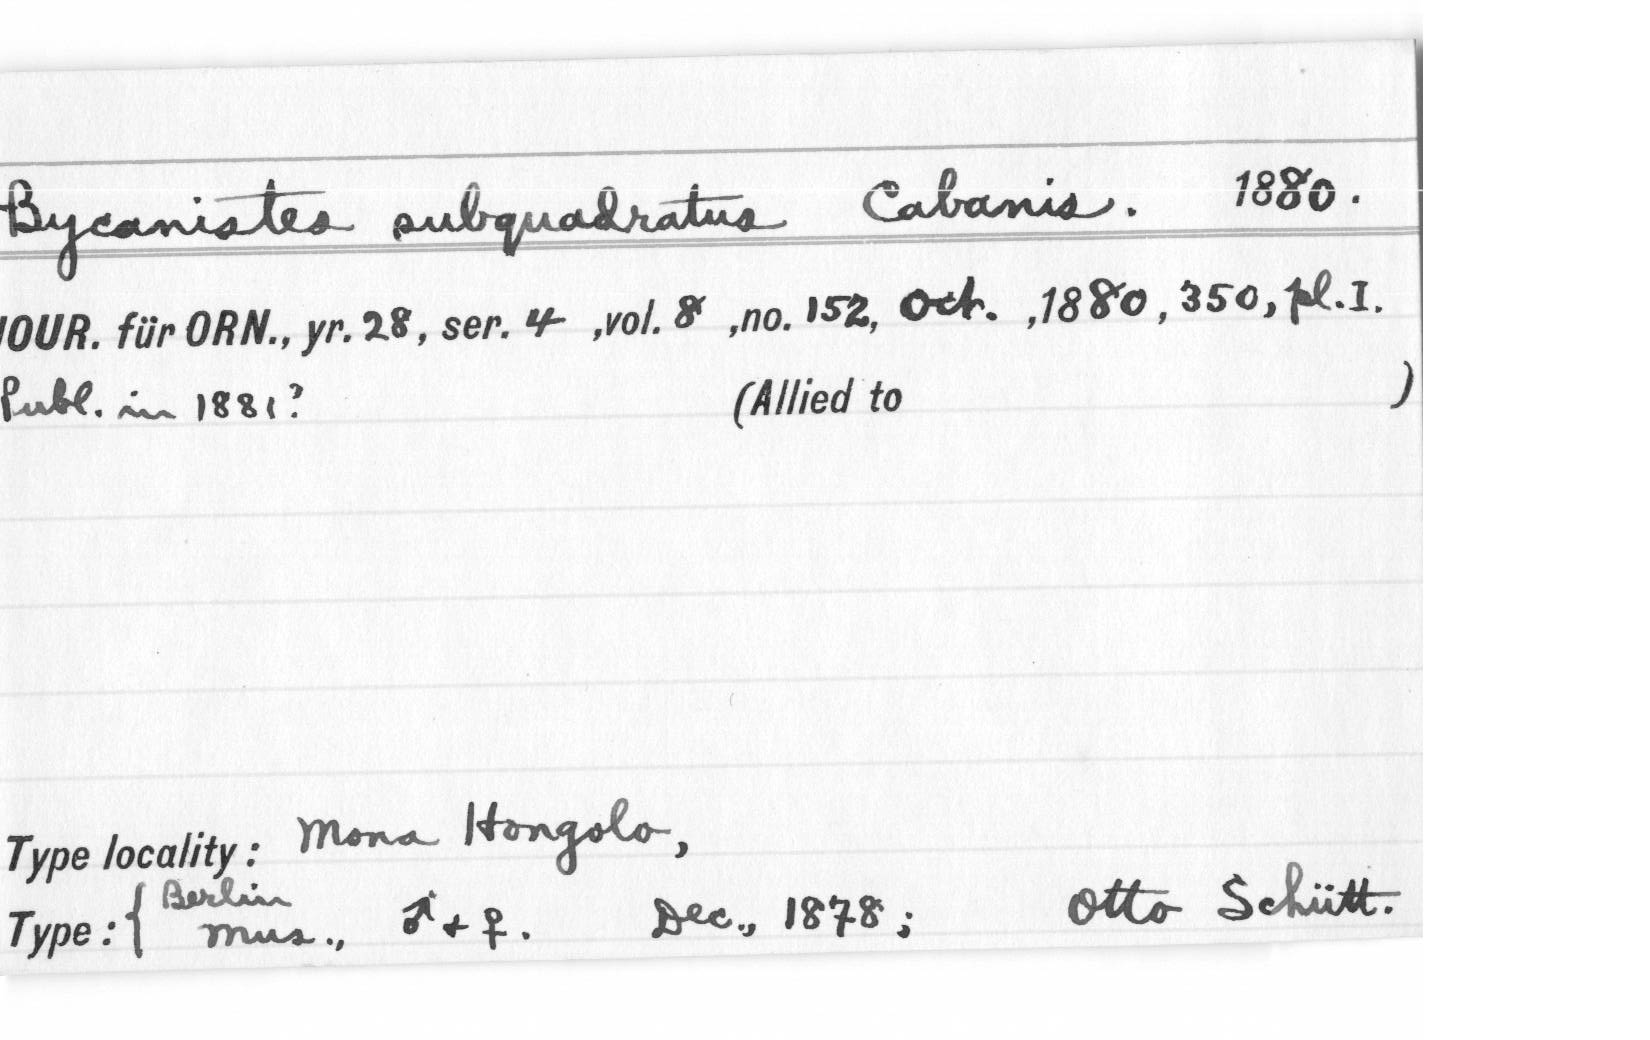 Bycanistes subquadratus Cabanis. 1880.
JOUR. für ORN., yr. 28, ser. 4 ,vol. 8 ,no. 152, Oct. ,1880, 350, pl. I.
Publ. in 1881? (Allied to )
Type locality: Mona Hongolo,
Type: { Berlin
mus., ♂ + ♀. Dec., 1878; Otto Schütt.